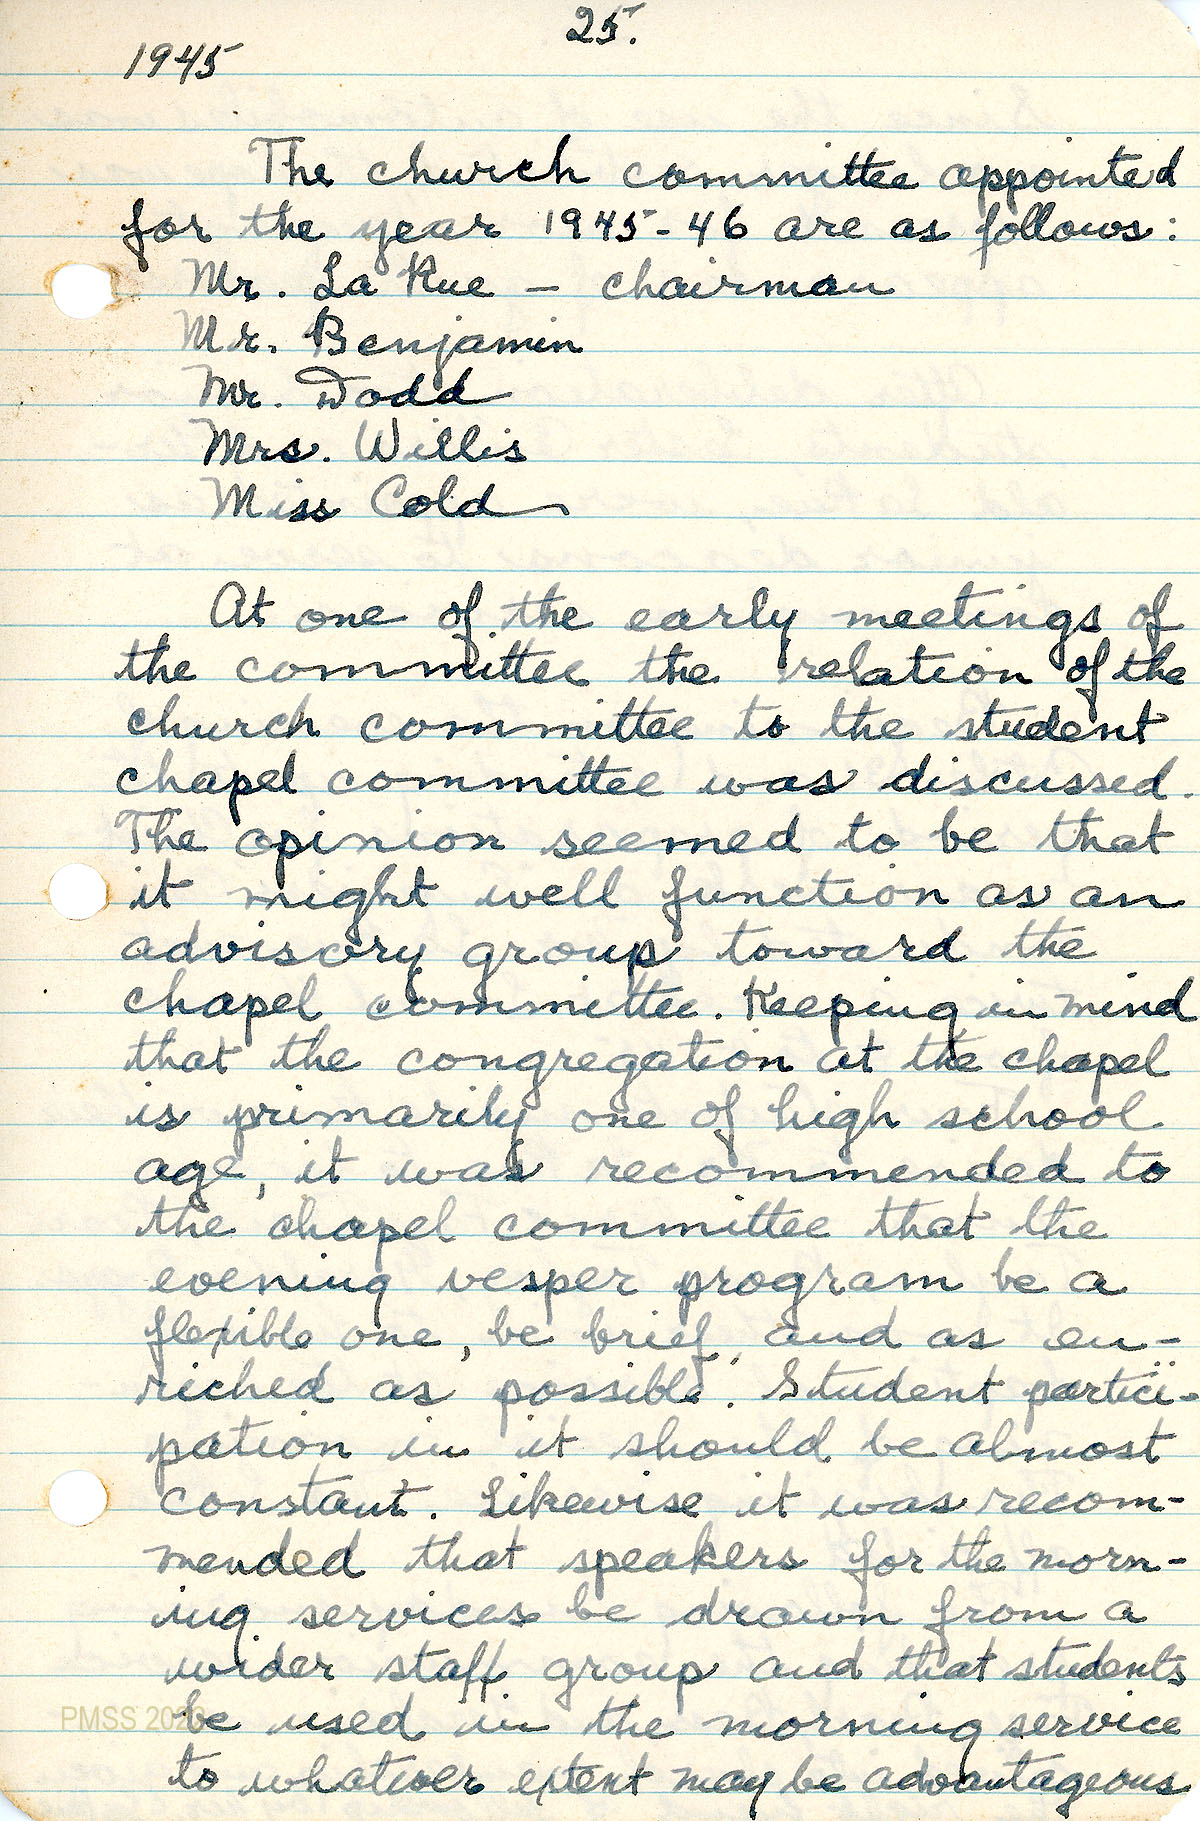 25.
1945
The church committee appointed
for the year 1945-46 are as follows:
Mr. La Rue – chairman
Mr. Benjamin
Mr. Dodd
Mrs. Willis
Miss Cold
At one of the early meetings of
the committee the relation of the
church committee to the student
chapel committee was discussed.
The opinion seemed to be that
it might well function as an
advisory group toward the
chapel committee. Keeping in mind
that the congregation at the chapel
is primarily one of high school
age, it was recommended to
the chapel committee that the
evening vesper program be a
flexible one, be brief, and as en-
riched as possible. Student partici-
pation in it should be almost
constant. Likewise it was recom-
mended that speakers for the morn-
ing services be drawn from a
wider staff group and that students
be used in the morning service
to whatever extent may be advantageous
PMSS 2020